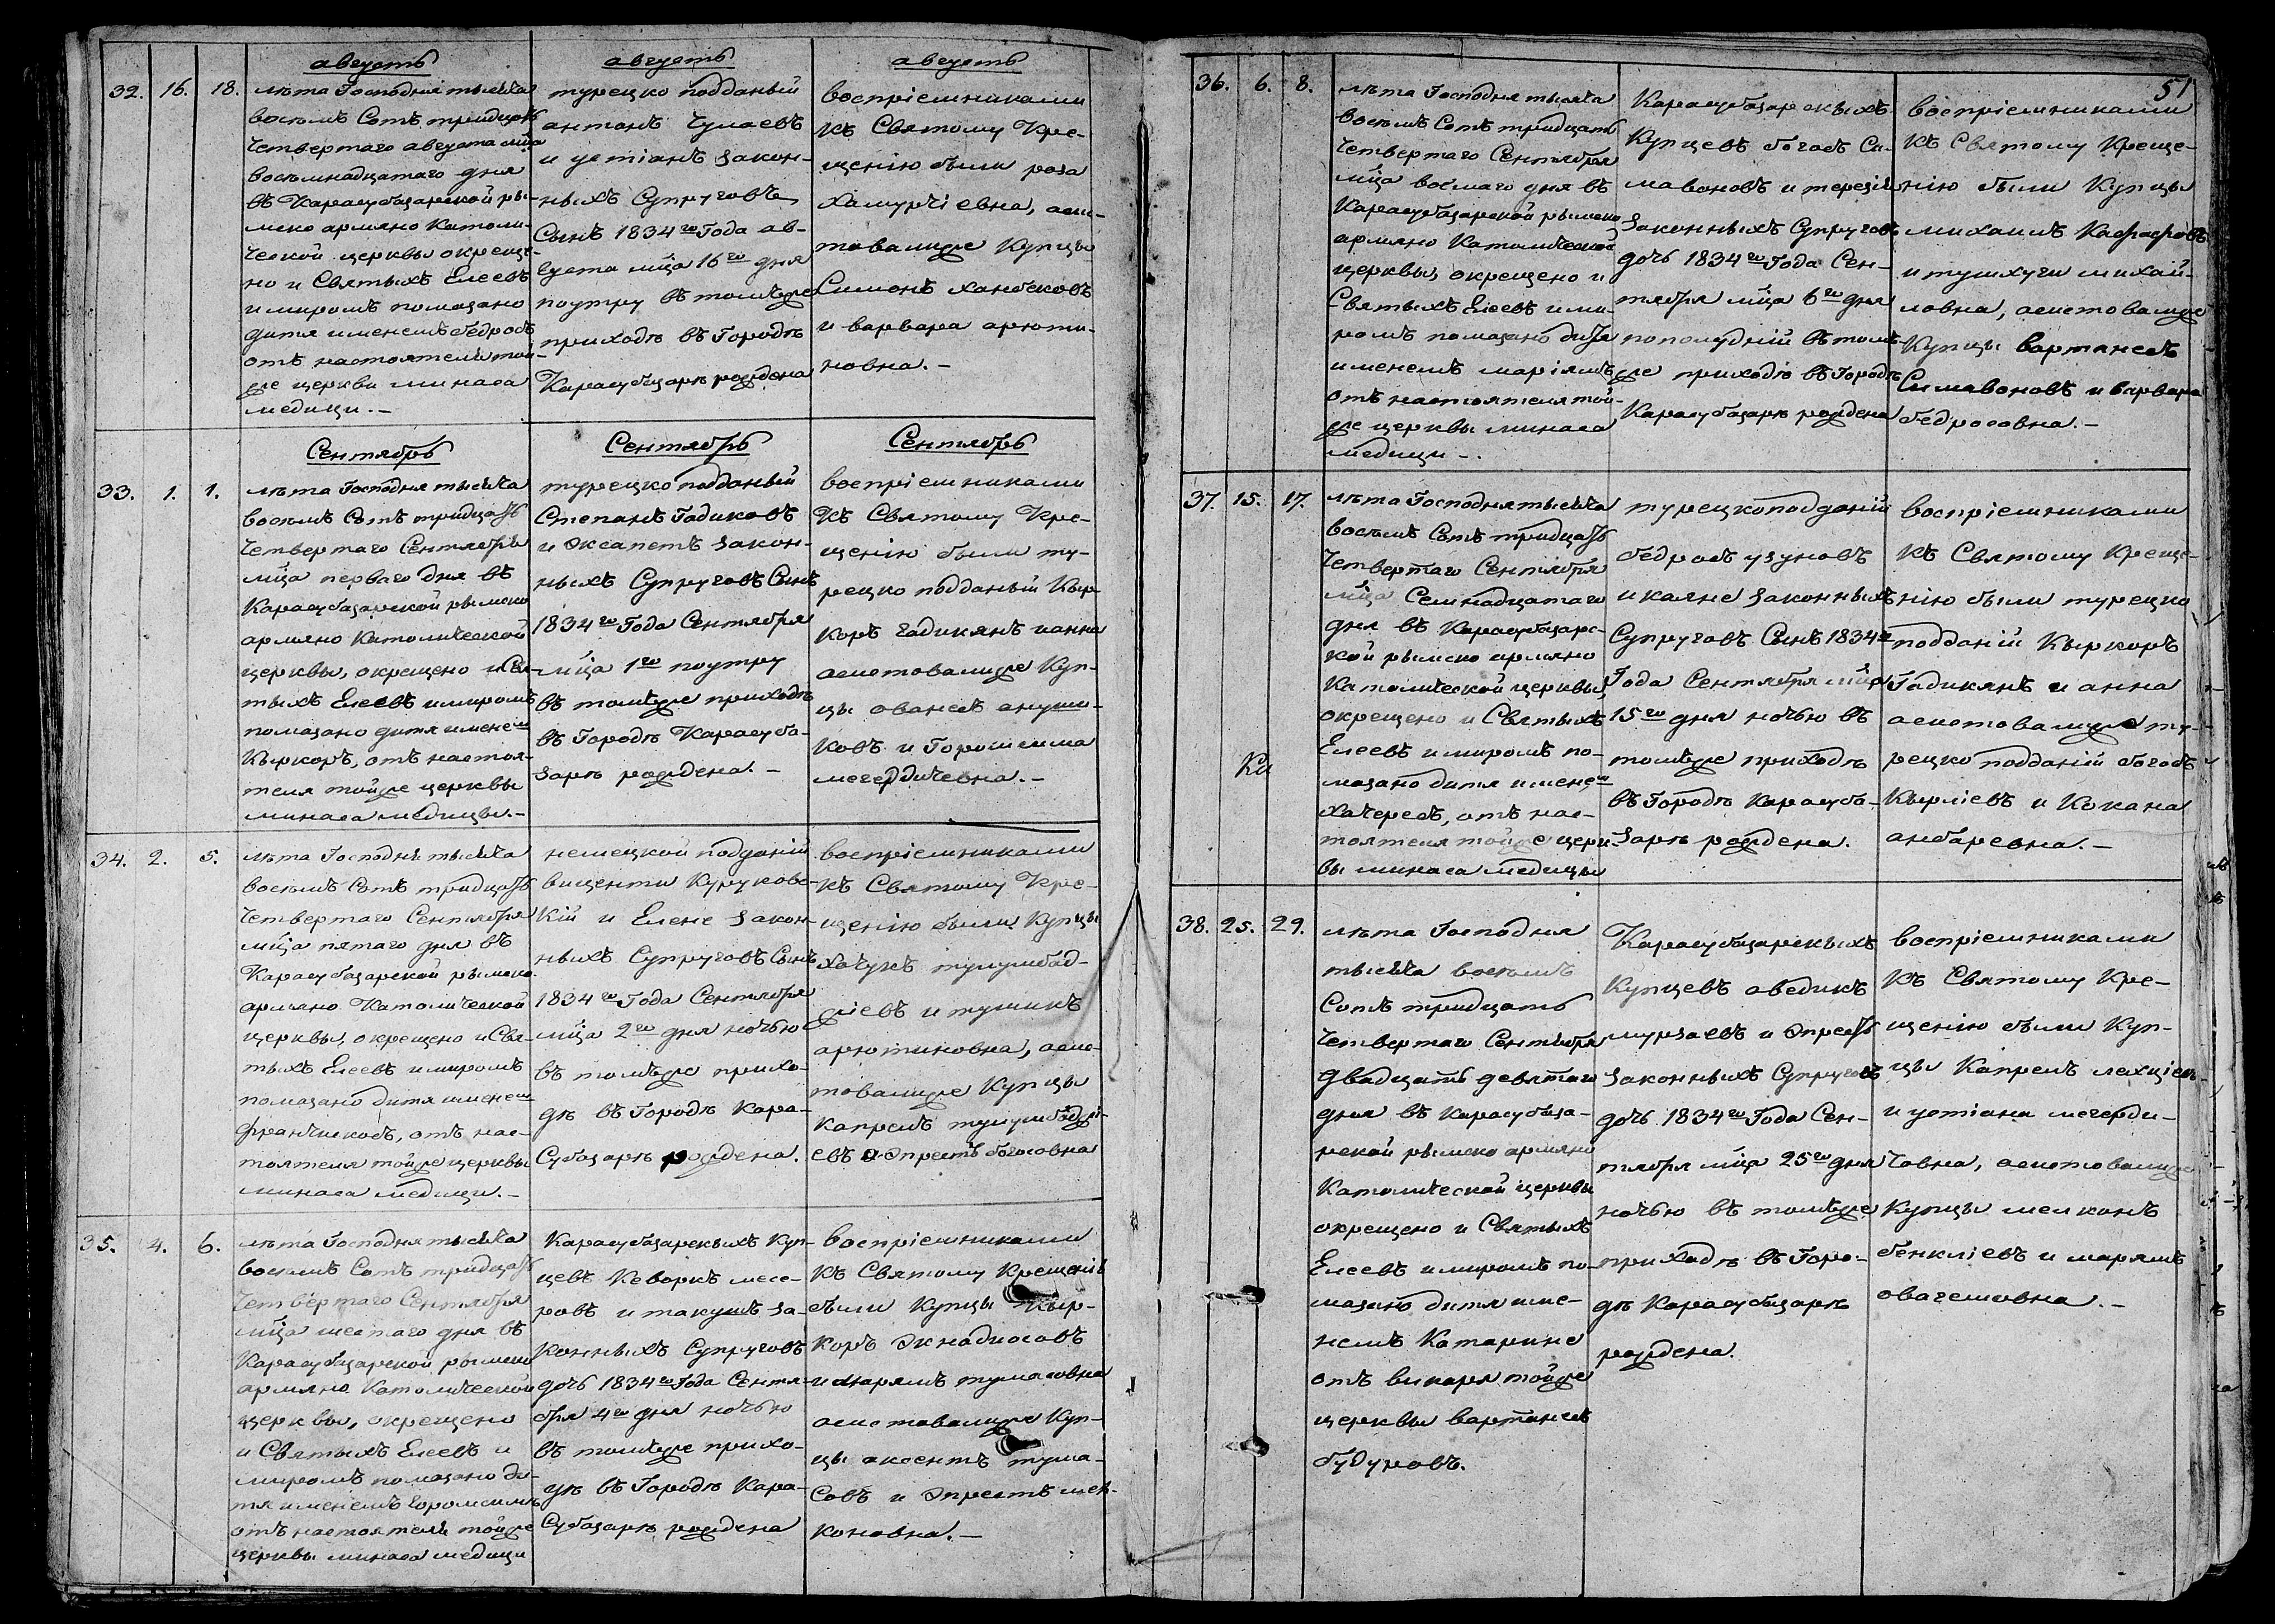 августъ
32. 16. 18.
лѣта Господня тысяча
восемъ Сотъ тридцать
Четвертаго августа мца
восемнадцатаго дня
въ Карасубазарской ры-
мско армяно Католи-
ческой церквы окреще-
но и Святыхъ Елеевъ
и миромъ помазано
дитя именемъ бедросъ
отъ настоятеля той-
же церкви минаса
медици.-
августъ
турецко подданый
антонъ Чулаевъ
и устіанъ закон-
ныхъ Супруговъ
Сынъ 1834го Года ав-
густа мца 16го дня
поутру въ томъже
приходѣ въ Городѣ
Карасубазарѣ рождена
августъ
воспріемниками
къ Святому Кре-
щенію были роза
хамурчіевна, асис-
товалиже Купцы
Симонъ ханбековъ
и варвара арюти-
новна.-
Сентябрь
33. 1. 1.
лѣта Господня тысяча
восемъ Сотъ тридцать
Четвертаго Сентября
мца перваго дня въ
Карасубазарской рымско
армяно Католической
церквы, окрещено и Свя-
тыхъ Елеевъ и миромъ
помазано дитя именем
Кыркоръ, отъ настоя-
теля тойже церквы
минаса медицы.-
Сентябрь
турецко подданый
Степанъ Гадиковъ
и Эксапетъ закон-
ныхъ Супруговъ Сынъ
1834го Года Сентября
мца 1го поутру
въ томъже приходѣ
въ Городѣ Карасуба-
зарѣ рождена.-
Сентябрь
воспріемниками
къ Святому Кре-
щенію были ту-
рецко подданый Кыр-
коръ гадикянъ и анна
асистовалиже Куп-
цы ованесъ ануш-
ковъ и Горомсима
мегердичевна.-
34. 2. 5.
лѣта Господня тысяча
восемъ Сотъ тридцать
Четвертаго Сентября
мца пятаго дня въ
Карасубазарской рымско
армяно Католической
церквы, окрещено и Свя-
тыхъ Елеевъ и миромъ
помазано дитя именем
францискосъ, отъ нас-
тоятеля тойже церквы
минаса медици.-
немецкой подданій
виценти Куруковс-
кій и Елене закон-
ныхъ Супруговъ Сынъ
1834го Года Сентября
мца 2го дня ночью
въ томъже прихо-
дѣ въ Городѣ Кара-
Субазарѣ рождена.
воспріемниками
къ Святому Кре-
щенію были Купцы
хачукъ тулумбад-
жіевъ и тушикъ
арютиновна, асис-
товалиже Купцы
Капрелъ тулумбаджі-
евъ и Эпрестъ богосовна
35. 4. 6.
лѣта Господня тысяча
восемъ Сотъ тридцать
Четвертаго Сентября
мца шестаго дня въ
Карасубазарской рымско
армяно Католической
церквы, окрещено
и Святыхъ Елеевъ и
миромъ помазано ди-
тя именемъ Горомсимъ
отъ настоятеля тойже
церквы минаса медици
Карасубазарскихъ Куп-
цевъ Кеворкъ месе-
ровъ и такушъ за-
конныхъ Супруговъ
дочь 1834го Года Сентя-
бря 4го дня ночью
въ томъже прихо-
дѣ въ Городѣ Кара-
Субазарѣ рождена
воспріемниками
къ Святому Крещенію
были Купцы Кыр-
коръ Экнадиосовъ
и марямъ тумасовна
асистовалиже Куп-
цы аксентъ тума-
Совъ и Эпрестъ мел-
коновна.-
51
36. 6. 8.
лѣта Господня тысяча
восемъ Сотъ тридцать
Четвертаго Сентября
мца восмаго дня въ
Карасубазарской рымско
армяно Католической
церквы, окрещено и
Святыхъ Елеевъ и ми-
ромъ помазано дитя
именемъ маріямъ
отъ настоятеля той-
же церквы минаса
медици-.
Карасубазарскихъ
Купцевъ богосъ Си-
мавоновъ и терезія
законныхъ Супруговъ
дочь 1834го Года Сен-
тября мца 6го дня
пополудній въ томъ-
же приходѣ въ Городѣ
Карасубазарѣ рождена
воспріемниками
къ Святому Креще-
нію были Купцы
михаилъ Кафафовъ
и тушхуги михай-
ловна, асистовалиже
Купцы вартанесъ
Симавоновъ и варвара
бедросовна.-
37. 15. 17.
Ка
лѣта Господня тысяча
восемъ Сотъ тридцать
Четвертаго Сентября
мца Семнадцатаго
дня въ Карасубазарс-
кой рымско армяно
Католической церквы,
окрещено и Святыхъ
Елеевъ и миромъ по-
мазано дитя именем
хачересъ, отъ нас-
тоятеля тойже церк-
вы минаса медицы
турецкоподданій
бедросъ узуновъ
и каяне законныхъ
Супруговъ Сынъ 1834го
Года Сентября мца
15го дня ночью въ
томъже приходѣ
въ Городѣ Карасуба-
зарѣ рождена.
воспріемниками
къ Святому Креще-
нію были турецко
подданій Кыркоръ
Гадикянъ и анна
асистовалиже ту-
рецко подданій богосъ
Кырліевъ и Кокана
анбаревна.-
38. 25. 29.
лѣта Господня
тысяча восемъ
Сотъ тридцать
Четвертаго Сентября
двадцать девятаго
дня въ Карасубаза-
рской рымско армяно
Католической церквы
окрещено и Святыхъ
Елеевъ и миромъ по-
мазано дитя име-
немъ Катарине
отъ викаря тойже
церквы вартанесъ
будуровъ.
Карасубазарскихъ
Купцевъ аведикъ
мурзаевъ и Эпресть
законныхъ Супруговъ
дочь 1834го Года Сен-
тября мца 25го дня
ночью въ томъже
приходѣ въ Горо-
дѣ Карасубазарѣ
рождена.
воспріемниками
къ Святому Кре-
щенію были Куп-
цы Капрелъ лехціевъ
и устіана мегерди-
човна, асистовалиже
Купцы мелконъ
бенкліевъ и марямъ
овагемовна.-